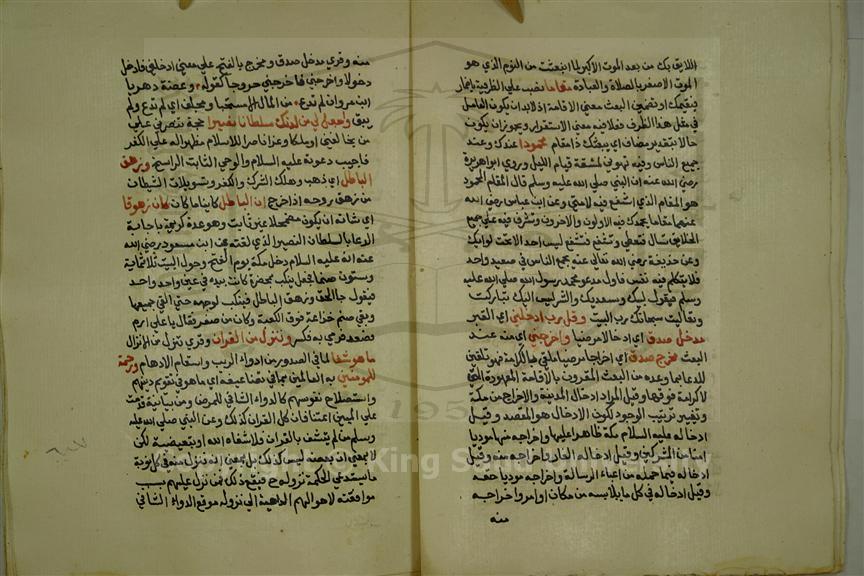 اللايق بك من بعد الموت الاكبر لما انبعثت من النوم الذي هو
الموت الاصغر بالصلاة والعبادة مقاما نصب علي الظرفية باضمار
فيقيمك او تضمين البعث معني الاقامة اذ لابد ان يكون العامل
في مثل هذا الظرف فعلا فيه معني الاستقرار ويجوز ان يكون
حالا بتقدير مضاف اي يبعثك ذا مقام محمودا عندك وعند
جميع الناس وفيه تهوين لمشقة قيام الليل وروي ابو هريرة
رضي الله عنه ان النبي صلي الله عليه وسلم قال المقام المحمود
هو المقام الذي اشفع فيه لامتي وعن ابن عباس رضي الله
عنهما مقاما يحمدك فيه الاولون والاخرون وتشرف فيه علي جميع
الخلايق تسال فتعطي وتشفع فتشفع ليس احد الا تحت لوايك
وعن حذيفة رضي الله تعالي عنه يجمع الناس في صعيد واحد
فلا يتكلم فيه نفس فاول مدعو محمد رسول الله صلي الله عليه
وسلم فيقول لبيك وسعديك والشر ليس اليك تباركت
وتعاليت سبحانك رب البيت وقل رب ادخلني اي القبر
مدخل صدق اي ادخالا مرضيا واخرجني اي منه عند
البعث مخرج صدق اي اخراجا مرضيا ملقي بالكرامة فهو تلقين
للدعا بما وعده من البعث المقرون بالاقامة المعهودة التي
لا كرامة فوقها وقيل المراد ادخال المدينة والاخراج من مكة
وتغيير ترتيب الوجود لكون الادخال هو المقصد وقيل
ادخاله عليه السلام مكة ظاهرا عليها واخراجه منها
امنا من المشركين وقيل ادخاله الغار واخراجه منه وقيل
ادخاله فيما حمله من اعباء الرسالة واخراجه منه موديا حقه
وقيل ادخاله في كل ما يلابسه من مكان او امر واخراجه
منه
منه وقري مدخل صدق ومخرج بالفتح علي معني ادخلني فادخل
دخولا واخرجني فاخرج خروجا كقوله وعضة دهر يا
ابن مروان لم تدع من المال الا مسحتا او مجلف اي لم تدع ولم
يبق واجعل لي من لدنك سلطانا نصيرا حجة تنصرني علي
من يخالفني او ملكا وعزا ناصرا للاسلام مظهرا له علي الكفر
فاجيب دعوته عليه السلام والوحي الثابت الراسخ وزهق
الباطل اي ذهب وهلك الشرك والكفر وتسويلات الشيطان
من زهق روحه اذا خرج ان الباطل كاينا ما كان كان زهوقا
اي شانه ان يكون مضمحلا غير ثابت وهو عدة كريمة باجابة
الدعا بالسلطان النصير الذي لقنه عن ابن مسعود رضي الله
عنه انه عليه السلام دخل مكة يوم الفتح وحول البيت ثلاثماية
وستون صنما فجعل ينكت بمخصرة كانت بيده في عين واحد واحد
فيقول جا الحق وزهق الباطل فينكب لوجهه حتي القي جميعها
وبقي صنم خزاعة فوق الكعبة وكان من صفر فقال يا علي ارم
فصعد فرمي به فكسر وننزل من القران وقري ننزل من الانزال
ما هو شفا لما في الصدور من ادواء الريب واسقام الاوهام ورحمة
للمومنين به العالمين بما في تضاعيفه اي ما هو في تقويم دينهم
واستصلاح نفوسهم كالدواء الشافي للمرضي ومن بيانية قدمت
علي المبين اعتنا فان كل القران كذلك وعن النبي صلي الله عليه
وسلم من لم يستشف بالقران فلا شفاه الله او تبعيضية لكن
لا بمعني ان بعضه ليس كذلك بل بمعني انا ننزل منه في كل نوبة
ما يستدعي الحكمة نزوله ح فيقع ذلك ممن نزل عليهم بسبب
موافقته لاحوالهم الداعية الي نزوله موقع الدواء الشافي